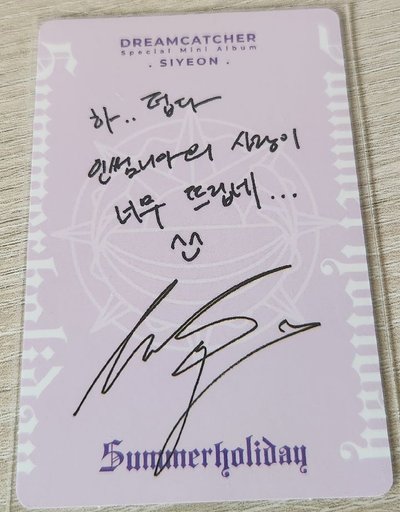 DREAMCATCHER
Special Mini Album
. SIYEON .
하.. 덥다
인썸니아의 사랑이
너무 뜨겁네...
^^
Summerholiday